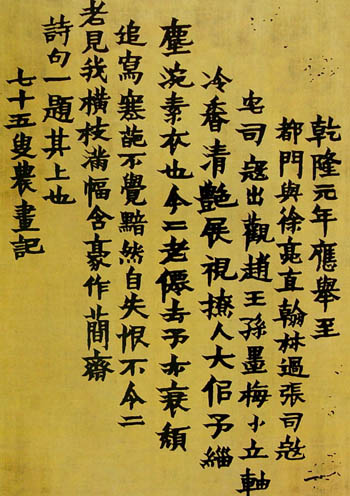 乾隆元年應舉至
都門與徐亮直翰林過張司寇
宅司寇出觀趙王孫墨梅小立軸
冷香清艷展視撩人大佀予緇
塵浣素衣也今二老僊去予亦衰頹
追寫寒葩不覺黯然自失恨不令二
老見我橫枝滿幅含豪作蕑齋
詩句一題其上也
七十五叟農畫記